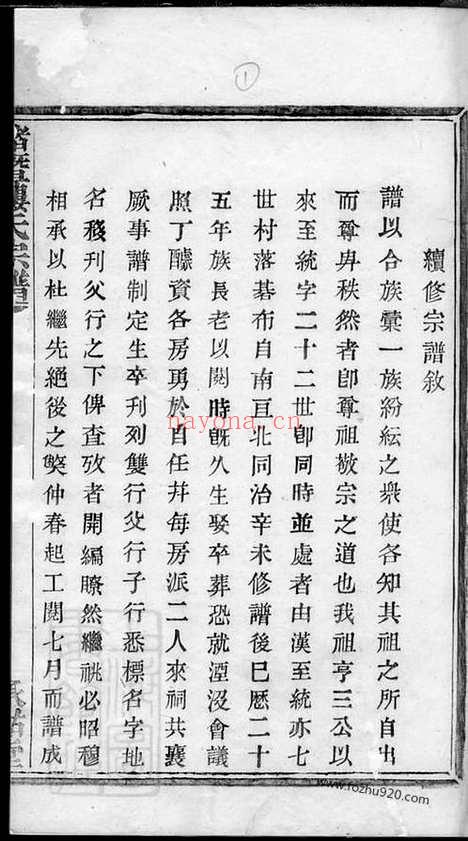 ①
續修宗譜敘
譜以合族彙一族紛紜之衆使各知其祖之所自出
而尊卑秩然者卽尊祖敬宗之道也我祖亨三公以
來至統字二十二世卽同時並處者由漢至統亦七
世村落碁布自南亘北同治辛未修譜後巳歷二十
五年族長老以閱時旣久生娶卒葬恐就湮沒會議
照丁醵資各房勇於自任幷每房派二人來祠共襄
厥事譜制定生卒刋列雙行父行子行悉標名字地
名移刋父行之下俾查攷者開編瞭然繼祧必昭穆
相承以杜繼先絕後之獘仲春起工閱七月而譜成
氏宗譜
nayona.cn
www.rozhu920.com